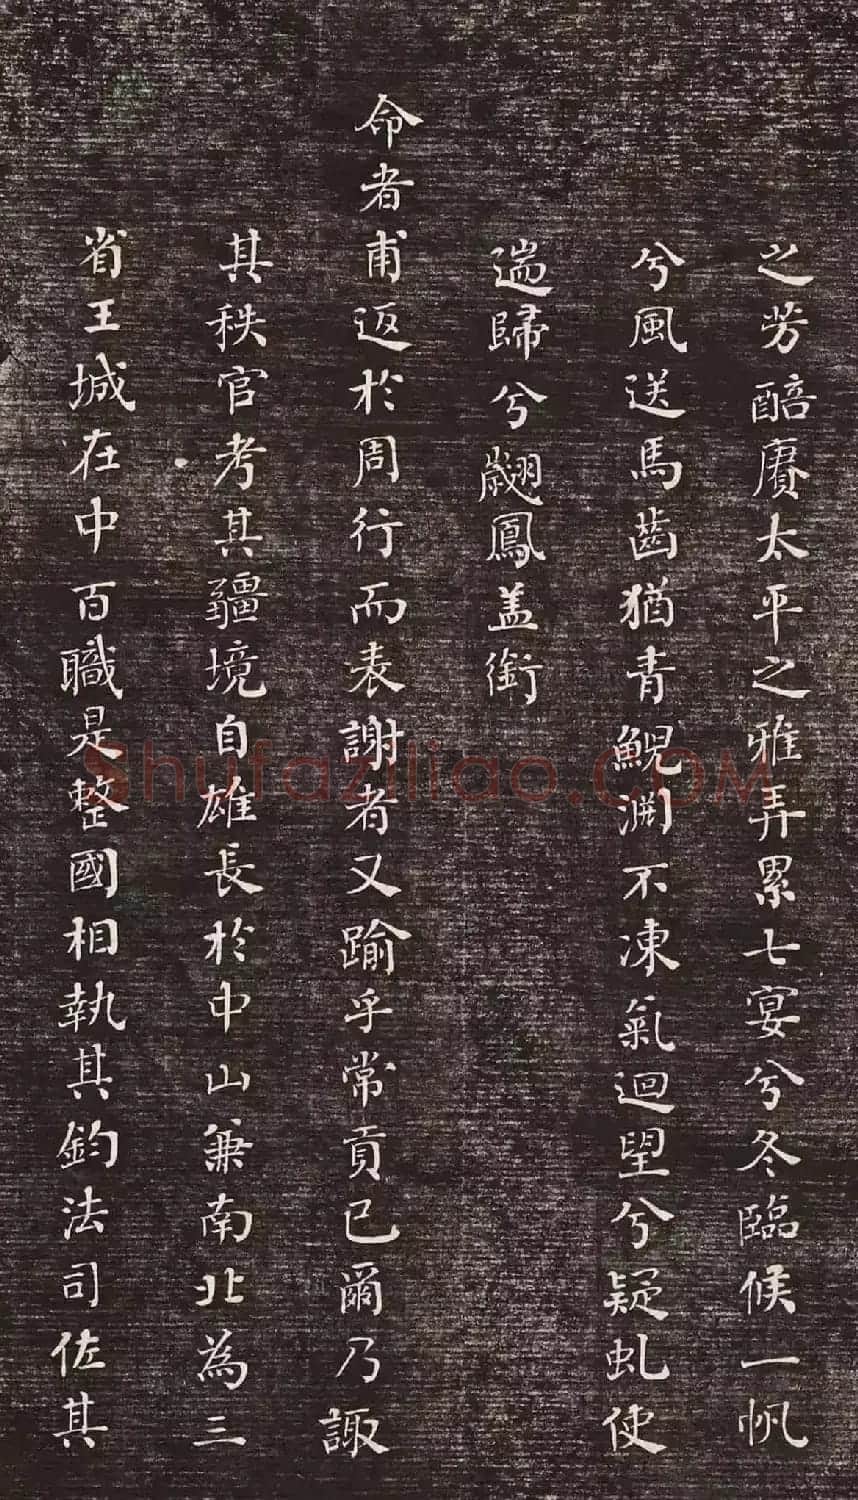 之芳醅賡太平之雅弄累七宴兮冬臨候一帆
兮風送馬齒猶青鯢淵不凍氣迴望兮疑虬使
遄歸兮翽鳳盖銜
命者甫返於周行而表謝者又踰乎常貢已爾乃諏
其秩官考其疆境自雄長於中山兼南北為三
省王城在中百職是整國相執其鈞法司佐其
Shufaziliao.COM